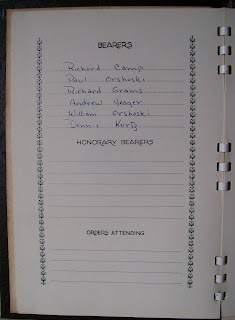 BEARERS
Richard Camp
Paul Orshoski
Richard Grams
Andrew Yeager
William Orshoski
Dennis Kurtz
HONORARY BEARERS
ORDERS ATTENDING